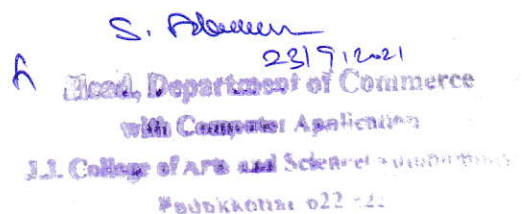 S.
23/9/2021
Head, Department of Commerce
with Computer Application
J.J. College of Arts and Science
Pudukkottai 622